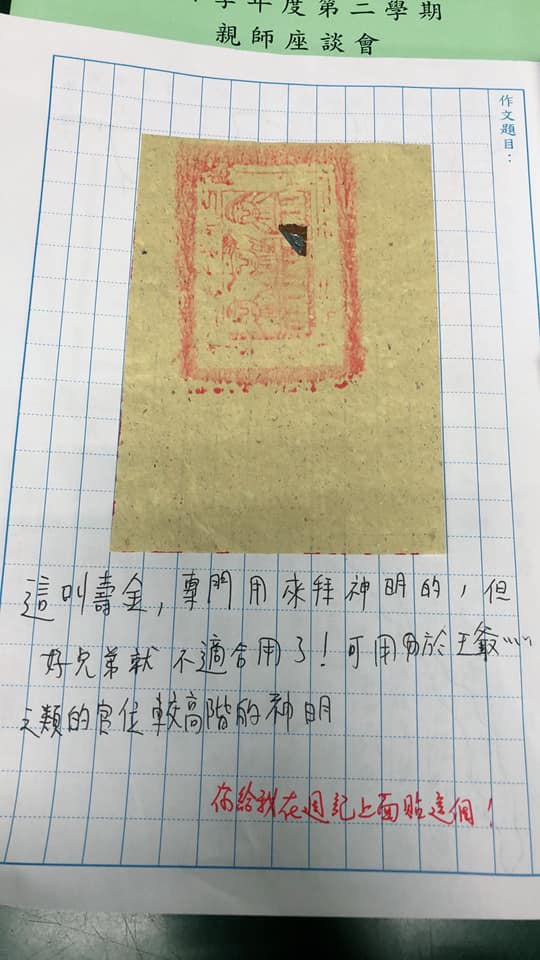 學年度第二學期
親師座談會
作文題目：
這叫壽金，專門用來拜神明的，但
好兄弟就不適合用了！可用於王爺……
之類的官位較高階的神明
你給我在週記上面貼這個！